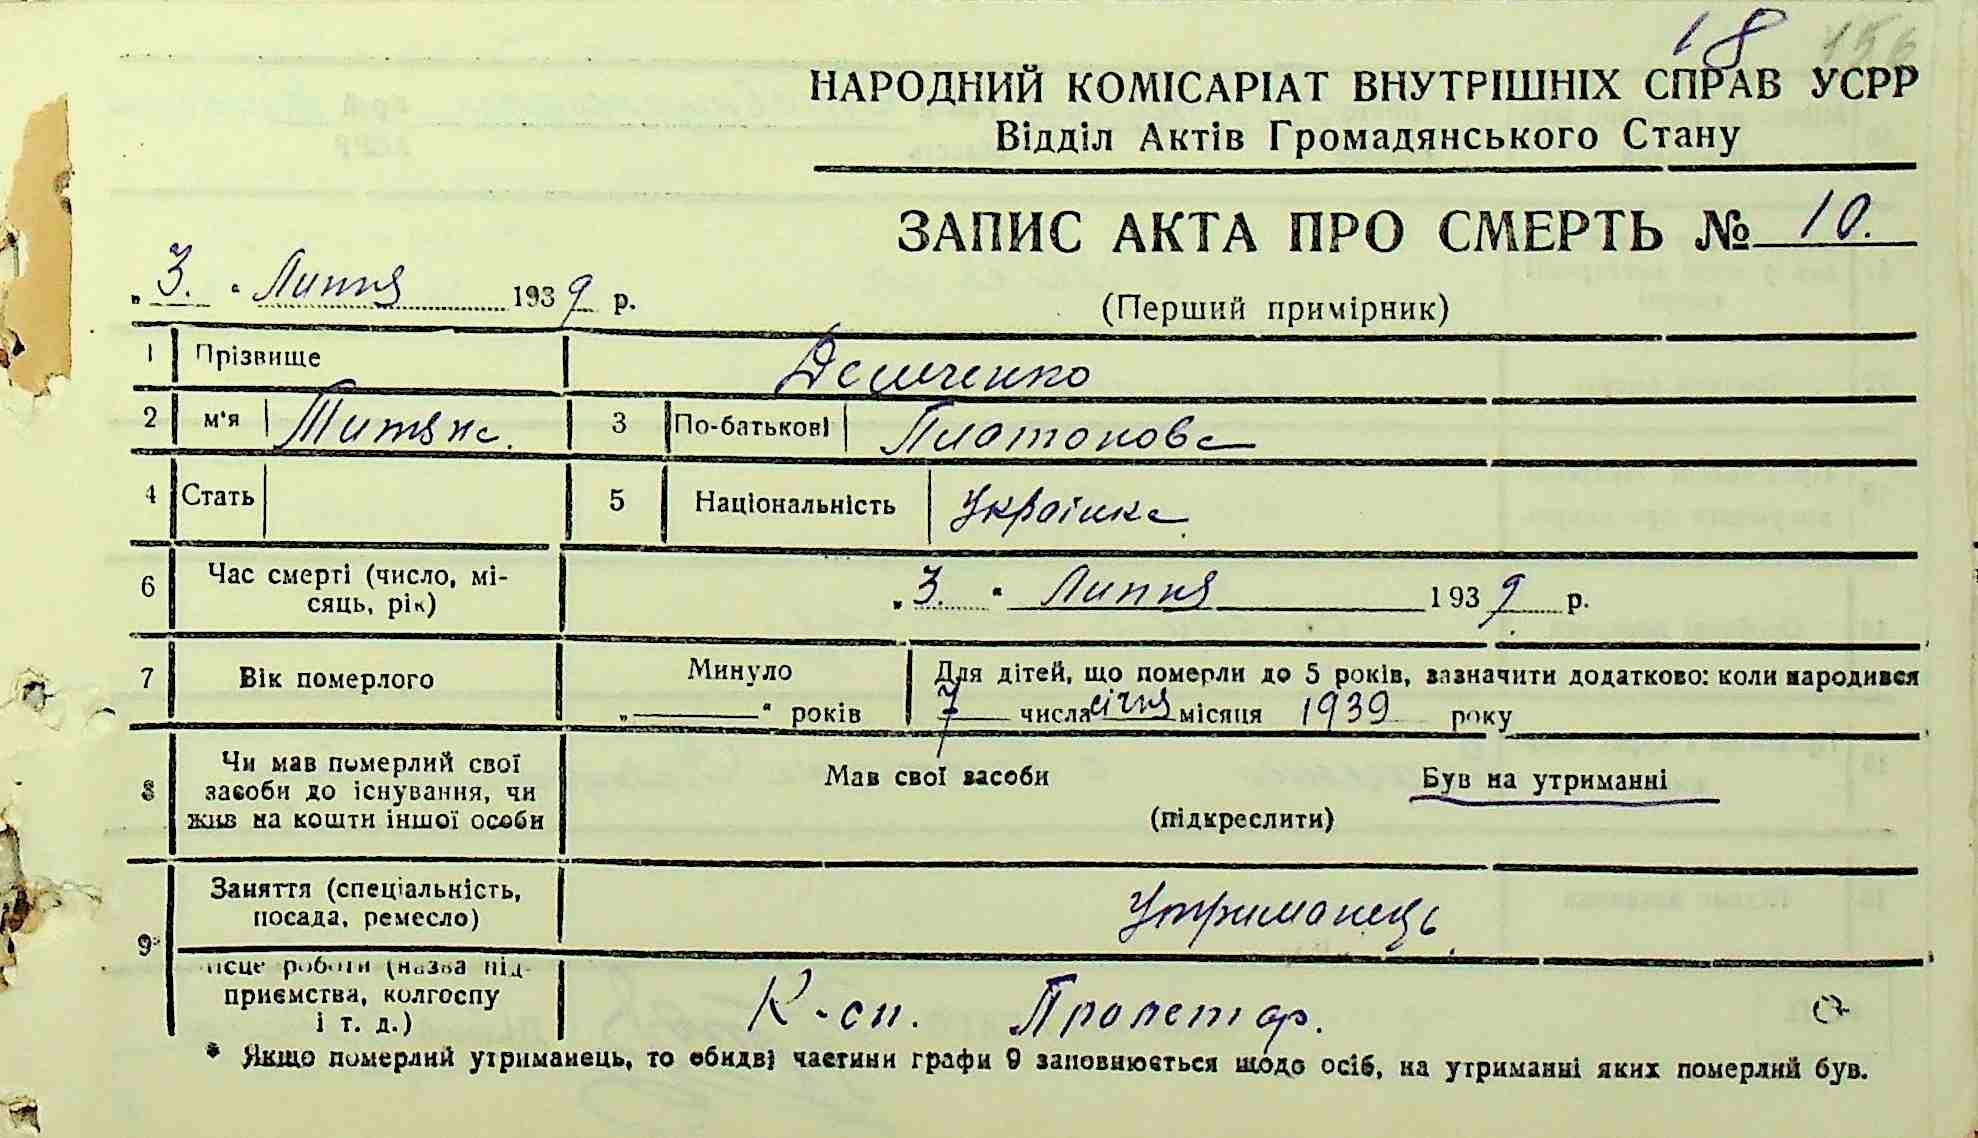 18 156
НАРОДНИЙ КОМІСАРІАТ ВНУТРІШНІХ СПРАВ УСРР
Відділ Актів Громадянського Стану
ЗАПИС АКТА ПРО СМЕРТЬ № 10.
„3.“ Липня 1939 р.
(Перший примірник)
1 Прізвище Демченко
2 м'я Титяна. 3 По-батькові Платонова
4 Стать 5 Національність Українка
6 Час смерті (число, мі-
сяць, рік) „3.“ Липня 1939 р.
7 Вік померлого Минуло „——“ років Для дітей, що померли до 5 років, зазначити додатково: коли народився
7 числа січня місяця 1939 року
8 Чи мав померлий свої
засоби до існування, чи
жив на кошти іншої особи
Мав свої засоби Був на утриманні
(підкреслити)
9 Заняття (спеціальність,
посада, ремесло) Утриманець
ісце роботи (назва під-
приємства, колгоспу
і т. д.) К-сп. Пролетар.
* Якщо померлий утриманець, то обидві частини графи 9 заповнюється щодо осіб, на утриманні яких померлий був.